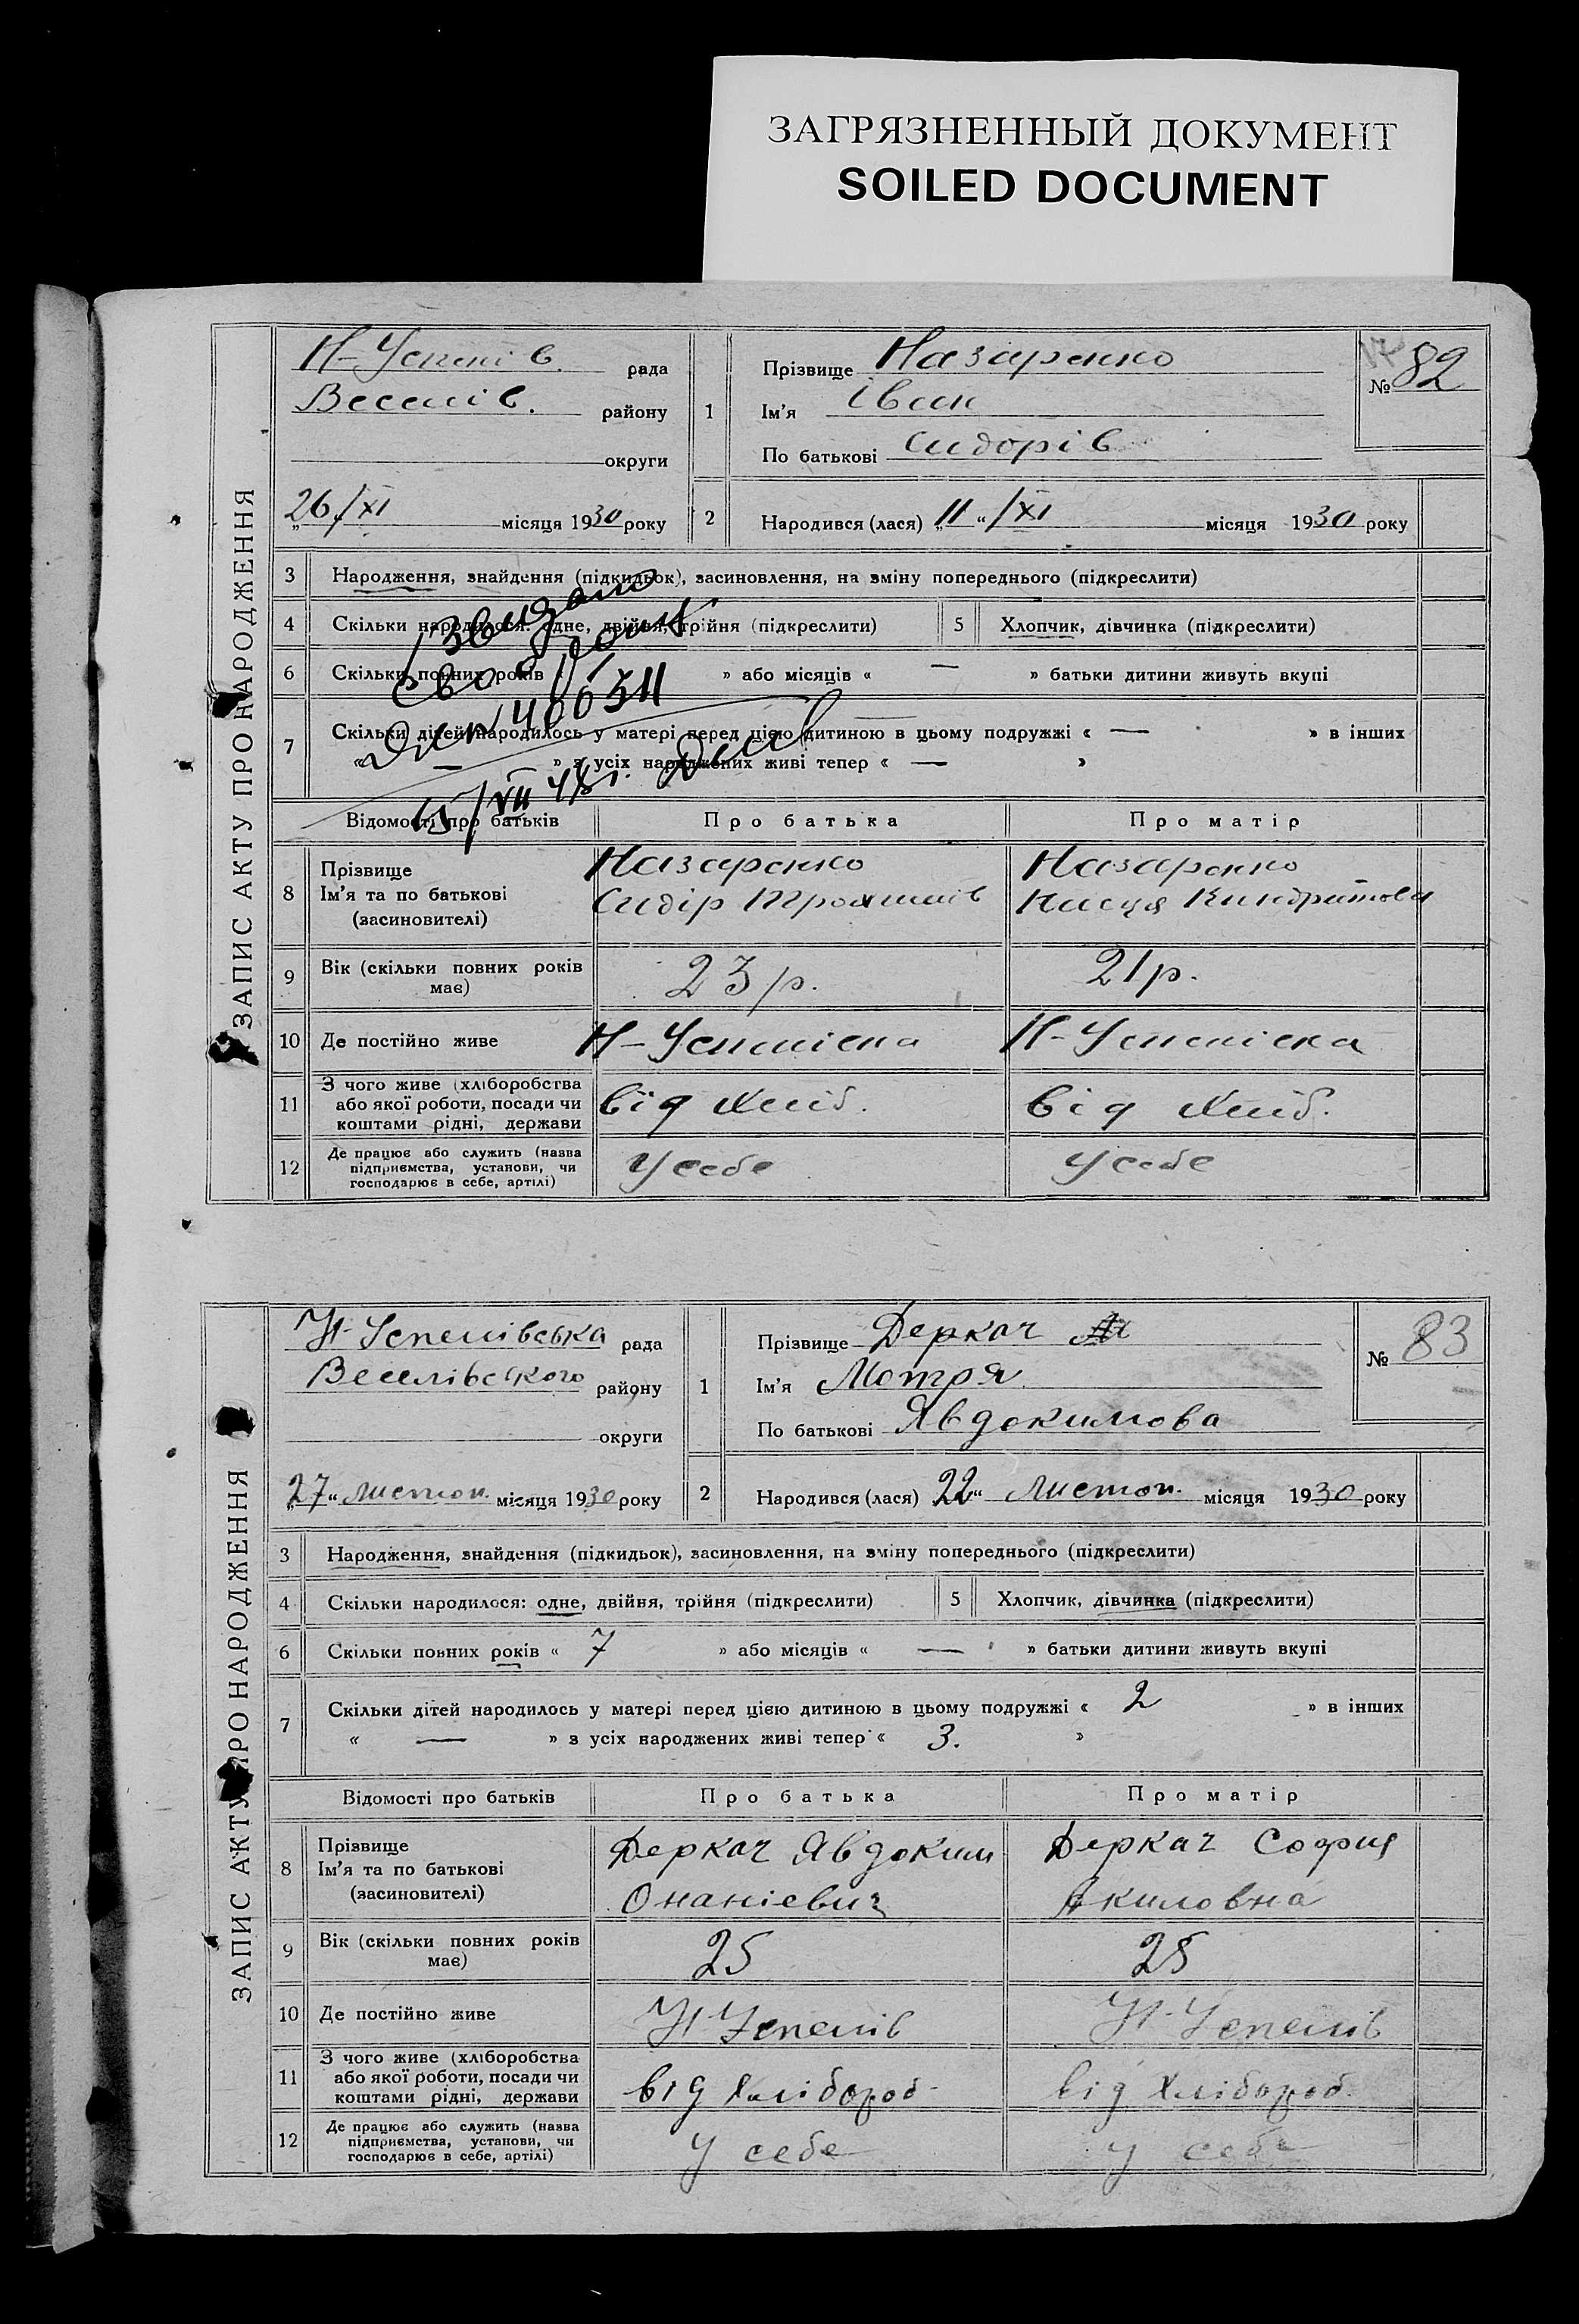 ЗАГРЯЗНЕННЫЙ ДОКУМЕНТ
SOILED DOCUMENT
ЗАПИС АКТУ ПРО НАРОДЖЕННЯ
Н-Успенів. рада
Веселів. району
округи
„26“/XI місяця 1930 року
1
Прізвище Назаренко
Ім'я Іван
По батькові Сидорів
№ 82
2 Народився (лася) „11“/XI місяця 1930 року
3 Народження, знайдення (підкидьок), засиновлення, на зміну попереднього (підкреслити)
4 Скільки народилося: одне, двійня, трійня (підкреслити) 5 Хлопчик, дівчинка (підкреслити)
6 Скільки повних років » або місяців « — » батьки дитини живуть вкупі
7 Скільки дітей народилось у матері перед цією дитиною в цьому подружжі « — » в інших
« — » з усіх народжених живі тепер « — »
Відомості про батьків Про батька Про матір
8 Прізвище
Ім'я та по батькові
(засиновителі)
Назаренко
Сидір
Назаренко
9 Вік (скільки повних років
має)
23 р.
21 р.
10 Де постійно живе Н-Успенівка Н-Успенівка
11 З чого живе (хліборобства
або якої роботи, посади чи
коштами рідні, держави
від хліб.
від хліб.
12 Де працює або служить (назва
підприємства, установи, чи
господарює в себе, артілі)
У себе
У себе
ЗАПИС АКТУ ПРО НАРОДЖЕННЯ
Н-Успенівська рада
Веселівського району
округи
„27“ листоп. місяця 1930 року
1
Прізвище Деркач
Ім'я Мотря
По батькові Явдокимова
№ 83
2 Народився (лася) „22“ листоп. місяця 1930 року
3 Народження, знайдення (підкидьок), засиновлення, на зміну попереднього (підкреслити)
4 Скільки народилося: одне, двійня, трійня (підкреслити) 5 Хлопчик, дівчинка (підкреслити)
6 Скільки повних років « 7 » або місяців « — » батьки дитини живуть вкупі
7 Скільки дітей народилось у матері перед цією дитиною в цьому подружжі « 2 » в інших
« — » з усіх народжених живі тепер « 3. »
Відомості про батьків Про батька Про матір
8 Прізвище
Ім'я та по батькові
(засиновителі)
Деркач Явдоким
Онанієвич
Деркач София
Якиловна
9 Вік (скільки повних років
має)
25
25
10 Де постійно живе Н-Успенів Н-Успенів
11 З чого живе (хліборобства
або якої роботи, посади чи
коштами рідні, держави
від хлібороб.
від хлібороб.
12 Де працює або служить (назва
підприємства, установи, чи
господарює в себе, артілі)
У себе
У себе